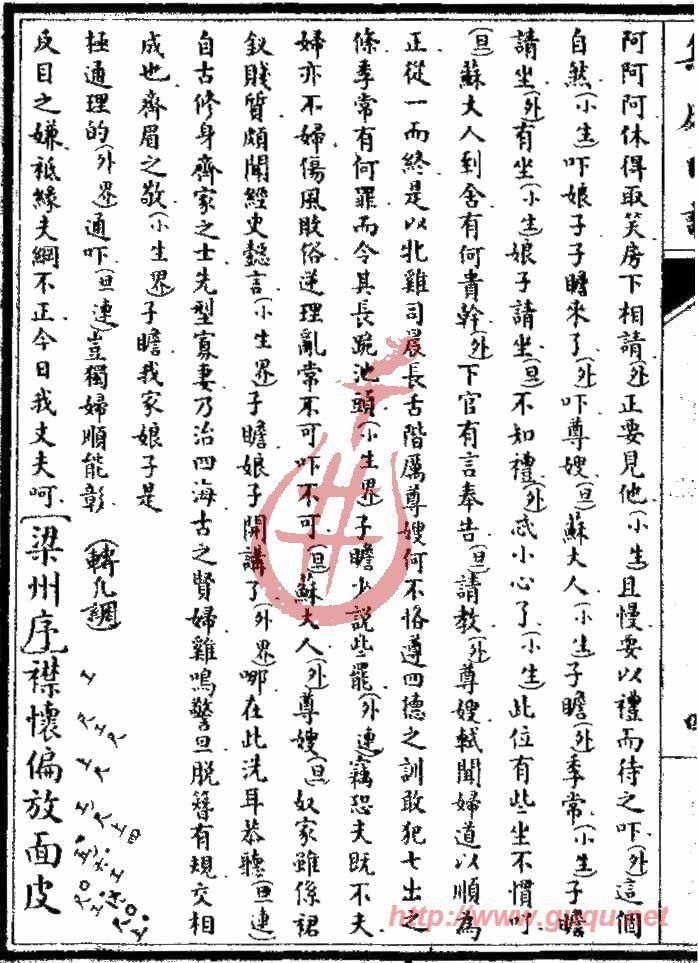 阿阿阿休得取笑房下相請(外)正要見他(小生)且慢要以禮而待之吓(外)這個
自然(小生)吓娘子子瞻來了(外)吓尊嫂(旦)蘇大人(小生)子瞻(外)季常(小生)子瞻
請坐(外)有坐(小生)娘子請坐(旦)不知禮(外)忒小心了(小生)此位有些坐不慣吓
(旦)蘇大人到舍有何貴幹(外)下官有言奉告(旦)請教(外)尊嫂軾聞婦道以順為
正從一而終是以牝雞司晨長舌階厲尊嫂何不恪遵四德之訓敢犯七出之
條季常有何罪而令其長跪池頭(小生界)子瞻少說些罷(外連)竊恐夫既不夫
婦亦不婦傷風敗俗逆理亂常不可吓不可(旦)蘇大人(外)尊嫂(旦)奴家雖係裙
釵賤質頗聞經史懿言(小生界)子瞻娘子開講了(外界)哪在此洗耳恭聽(旦連)
自古修身齊家之士先型寡妻乃治四海古之賢婦雞鳴警旦脱簪有規交相
成也齊眉之敬(小生界)子瞻我家娘子是
極通理的(外界)通吓(旦連)豈獨婦順能彰(轉凡調)
反目之嫌祗緣夫綱不正今日我丈夫呵[梁州序]襟懷偏放面皮
http://www.guqu.net